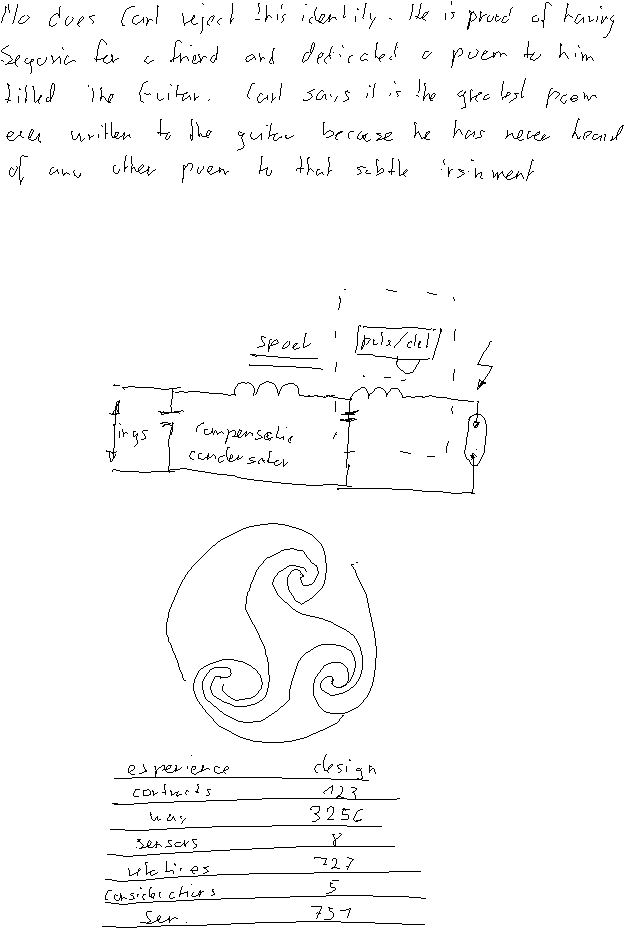 No does Carl reject this identity. He is proud of having
Segovia for a friend and dedicated a poem to him
titled The Guitar. Carl says it is the greatest poem
ever written to the guitar because he has never heard
of any other poem to that subtle instrument
spoel
puls/det
ings
compensatie
condensator
experience design
contracts 123
way 3256
sensors 8
relatives 727
considerations 5
ser. 751